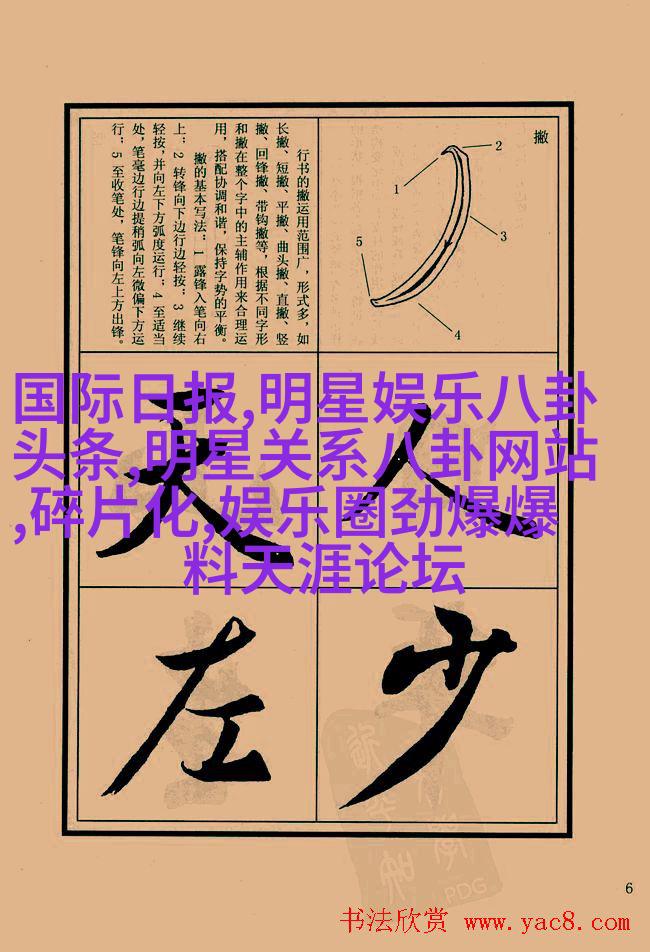 撇
1
2
3
4
5
行书的撇运用范围广，形式多，如
长撇、短撇、平撇、曲头撇、直撇、竖
撇、回锋撇、带钩撇等，根据不同字形
和撇在整个字中的主辅作用来合理运
用，搭配协调和谐，保持字势的平衡。
撇的基本写法：1 露锋入笔向右
上；2 转锋向下边行边轻按；3 继续
轻按，并向左下方弧度运行；4 至适当
处，笔毫边行边提稍弧向左微偏下方运
行；5 至收笔处，笔锋向左上方出锋。
国际日报,明星娱乐八卦
头条,明星关系八卦网站
,碎片化,娱乐圈劲爆爆
料天涯论坛
人
天
少
左
PDG
6
书法欣赏 www.yac8.com